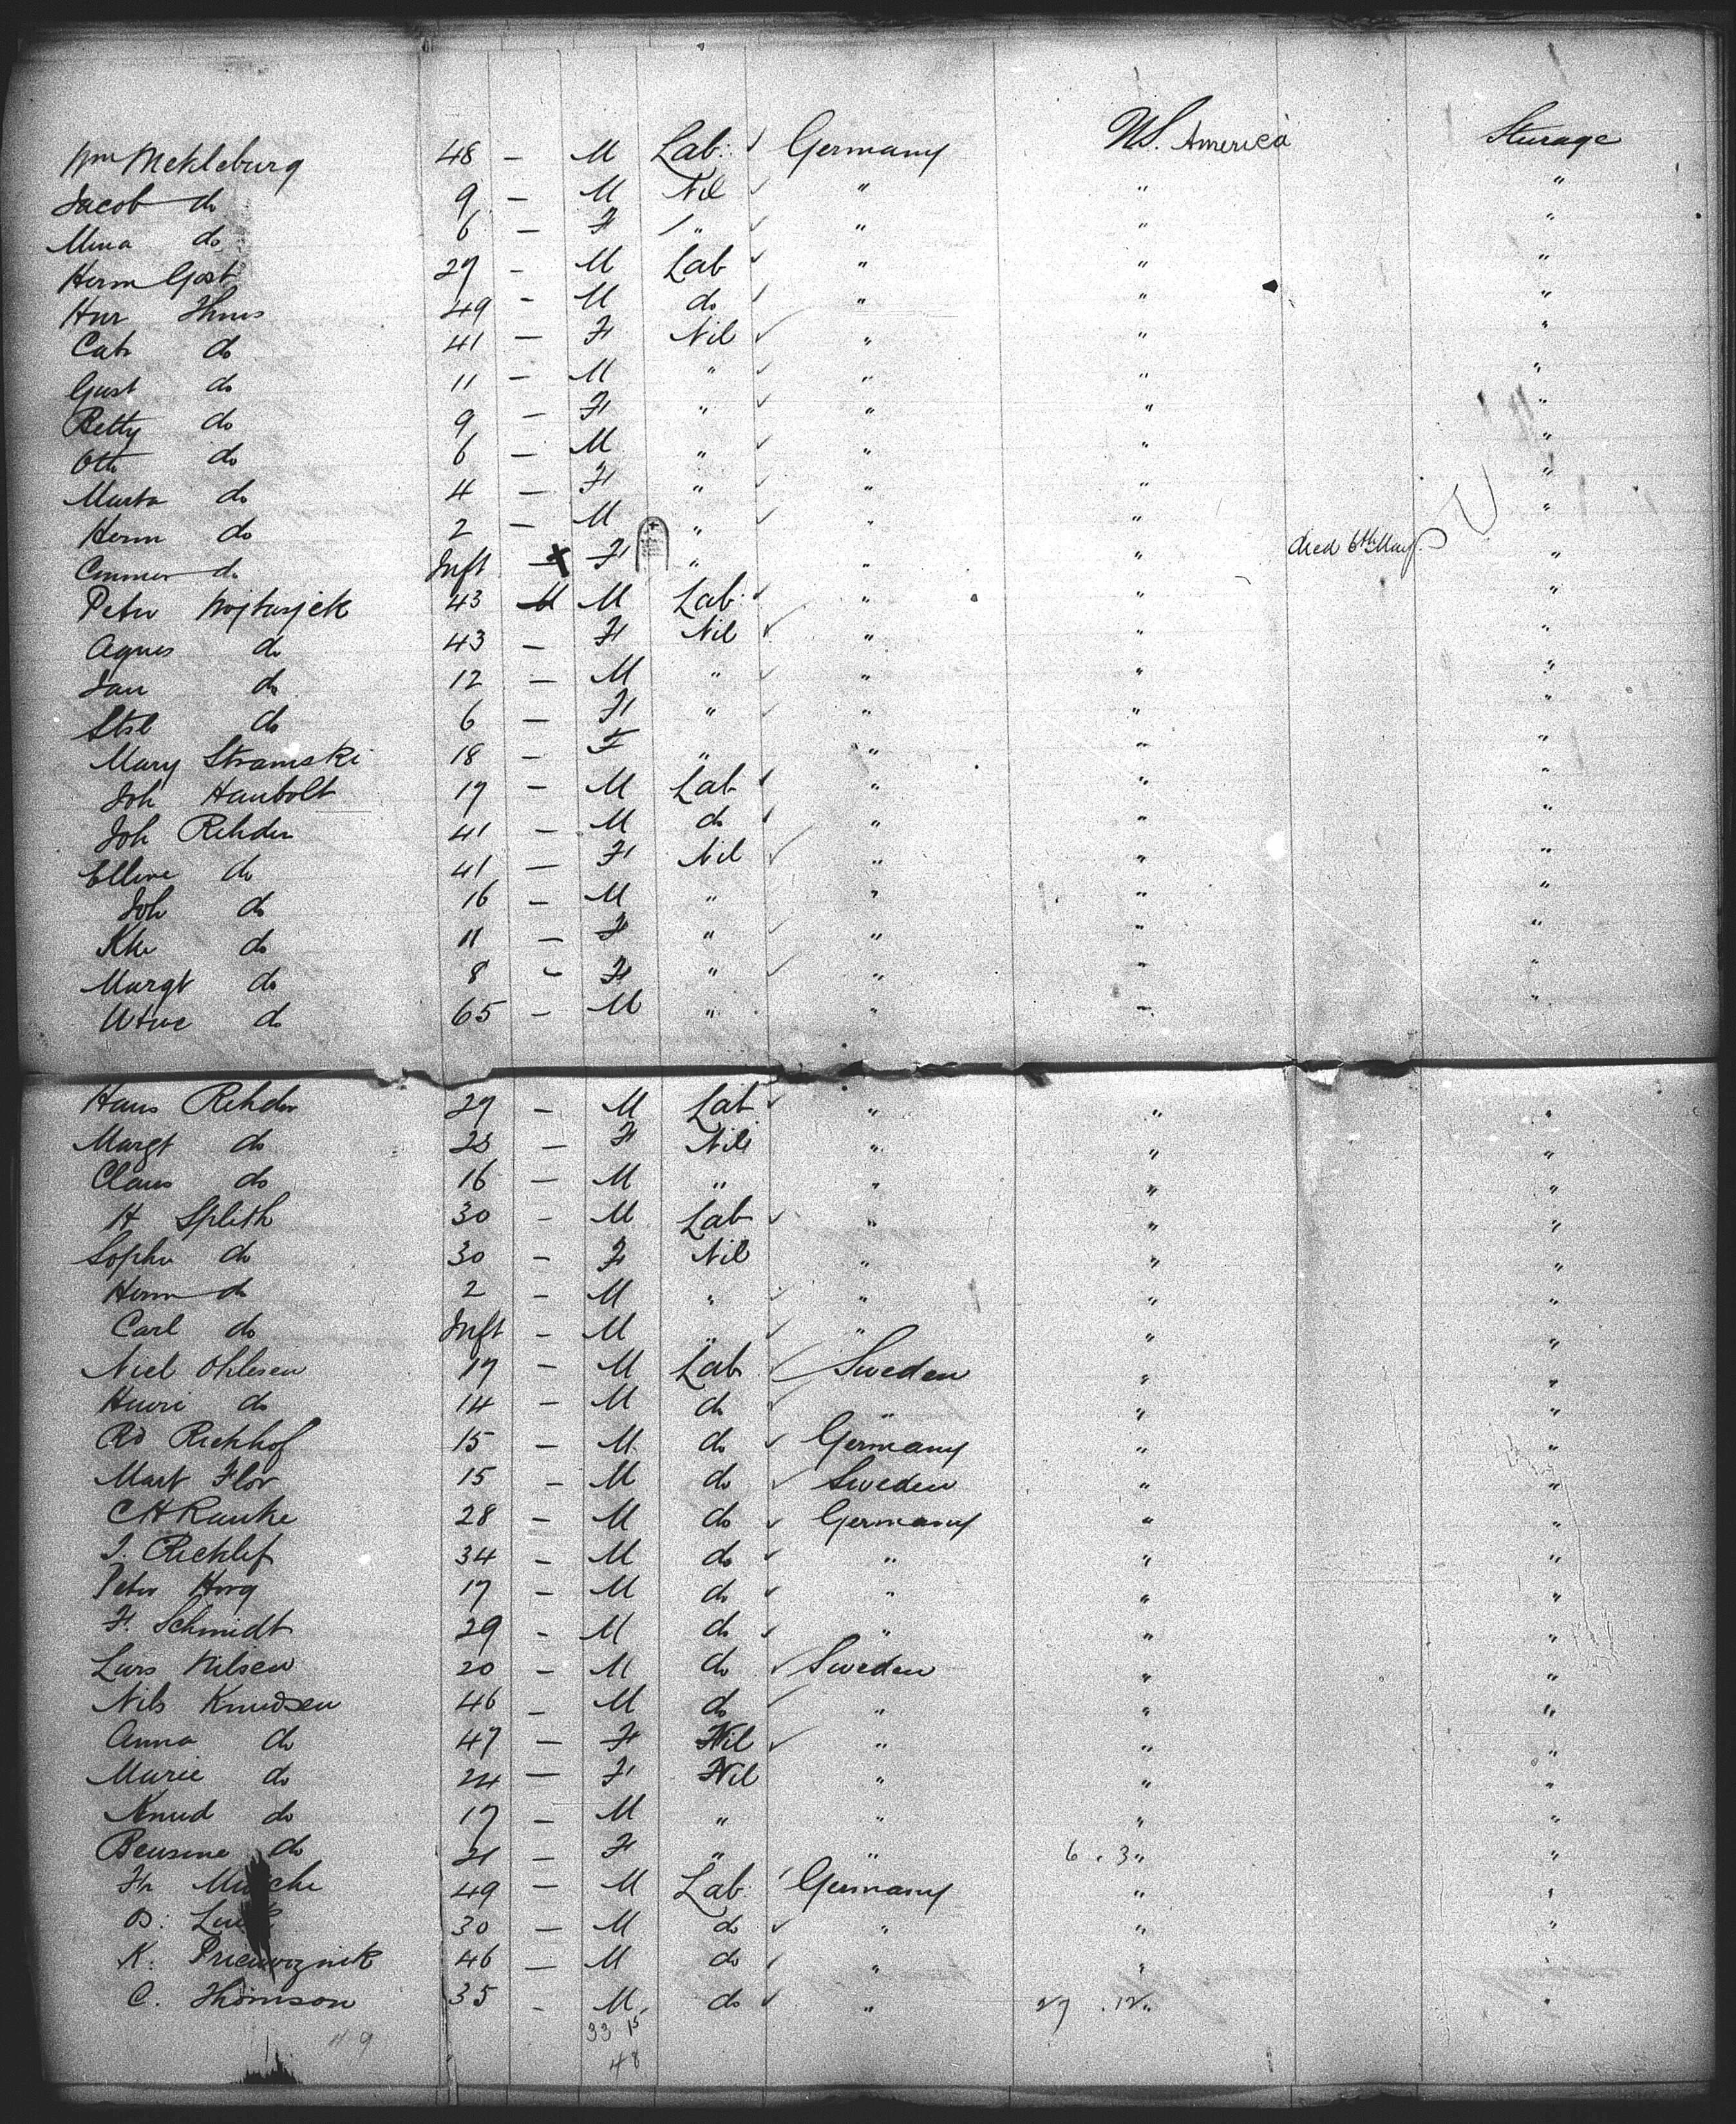 Wm Mekleburg 48 — M Lab: ✓ Germany US. America Sturage
Jacob do 9 — M Nil ✓ " " "
Mina do 6 — F " ✓ " " "
Herm Gost 27 — M Lab ✓ " " "
Hnr Thms 49 — M do ✓ " " "
Cath do 41 — F Nil ✓ " " "
Gust do 11 — M " ✓ " " "
Betty do 9 — F " ✓ " " "
Otto do 6 — M " ✓ " " "
Marta do 4 — F " ✓ " " "
Herm do 2 — M " ✓ " " "
do Inft — X F " " " died 6th May "
Peter 43 M M Lab: ✓ " " "
Agnes do 43 — F Nil ✓ " " "
Jan do 12 — M " ✓ " " "
do 6 — F " ✓ " " "
Mary Stramski 18 — F " " " "
Joh Haubolt 17 — M Lab ✓ " " "
Joh Rehder 41 — M do ✓ " " "
Elline do 41 — F Nil ✓ " " "
Joh do 16 — M " " " "
do 11 — F " ✓ " " "
Margt do 8 — F " ✓ " " "
do 65 — M " " " "
Hans Rehder 29 — M Lab ✓ " " "
Margt do 28 — F Nil " " "
Claus do 16 — M " " " "
H Splith 30 — M Lab ✓ " " "
Sophie do 30 — F Nil " " "
Herm do 2 — M " ✓ " " "
Carl do Inft — M " ✓ " " "
Niel Ohlesen 17 — M Lab ✓ Sweden " "
Henri do 14 — M do ✓ " " "
Rd Rickhof 15 — M do ✓ Germany " "
Mart Flor 15 — M do ✓ Sweden " "
C H Ranke 28 — M do ✓ Germany " "
J. Ricklef 34 — M do ✓ " " "
Peter 17 — M do ✓ " " "
F. Schmidt 29 — M do ✓ " " "
Lars Nilsen 20 — M do ✓ Sweden " "
Nils Knudsen 46 — M do ✓ " " "
Anna do 47 — F Nil ✓ " " "
Marie do 24 — F Nil " " "
Knud do 17 — M " " " "
do 21 — F " " 6 . 3 " "
Fr 49 — M Lab ✓ Germany " "
B: 30 — M do ✓ " " "
K. 46 — M do ✓ " " "
C. Thomson 35 — M do ✓ " 27 . 12 " "
33 15
49
48